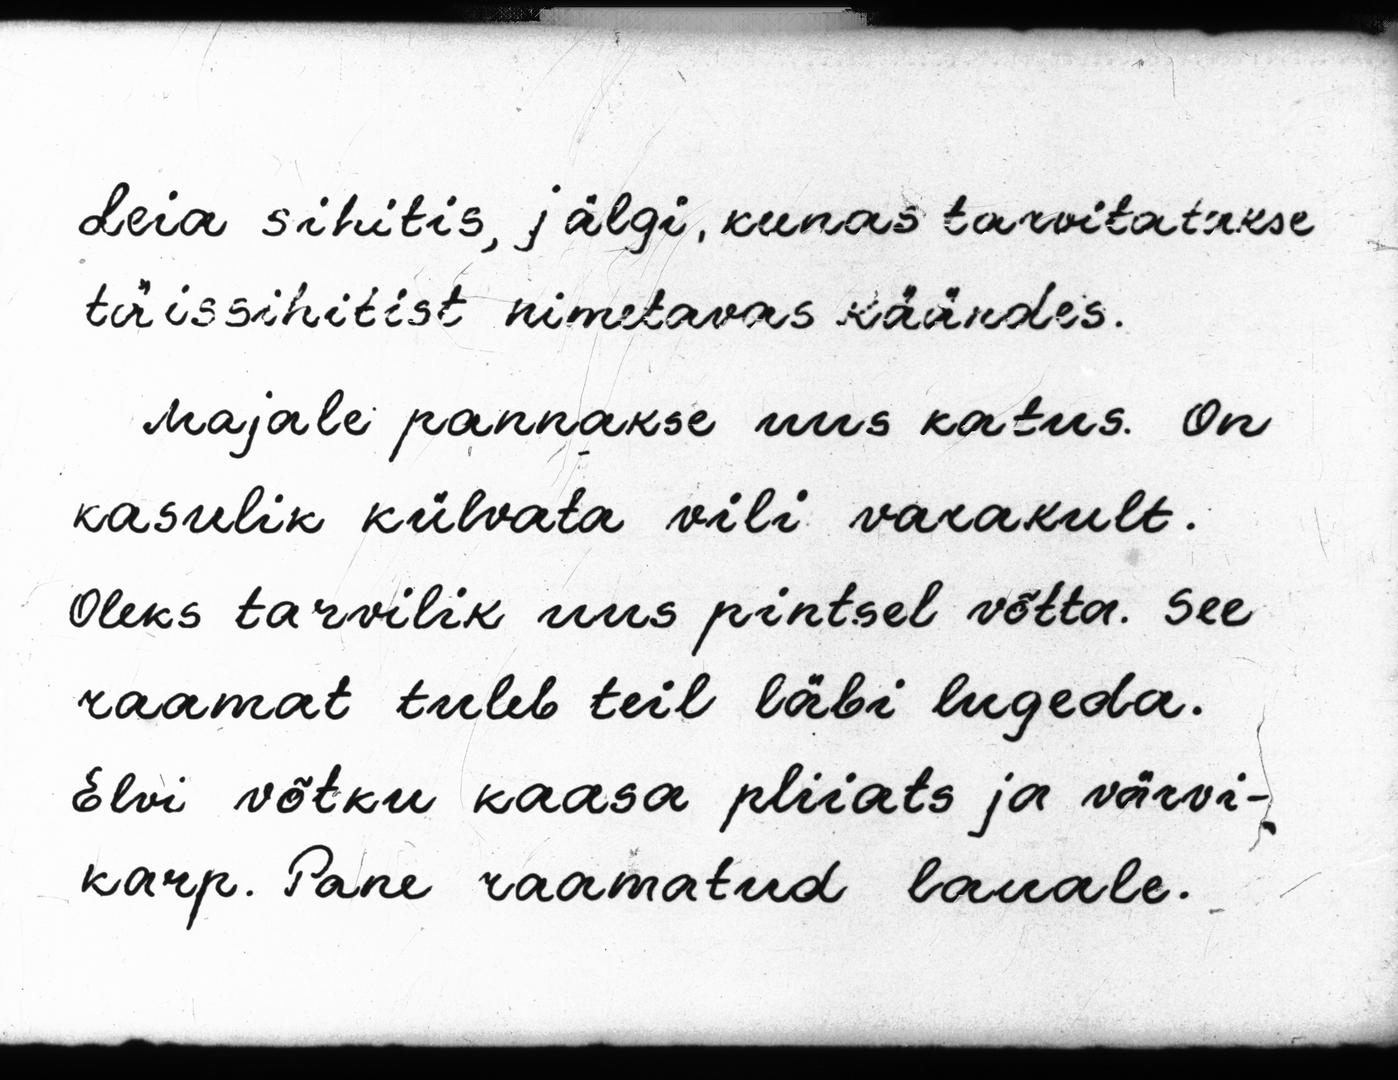 Leia sihitis, jälgi, kunas tarvitatakse
täissihitist nimetavas käändes.
Majale pannakse uus katus. On
kasulik külvata vili varakult.
Oleks tarvilik uus pintsel võtta. See
raamat tuleb teil läbi lugeda.
Elvi võtku kaasa pliiats ja värvi-
karp. Pane raamatud lauale.